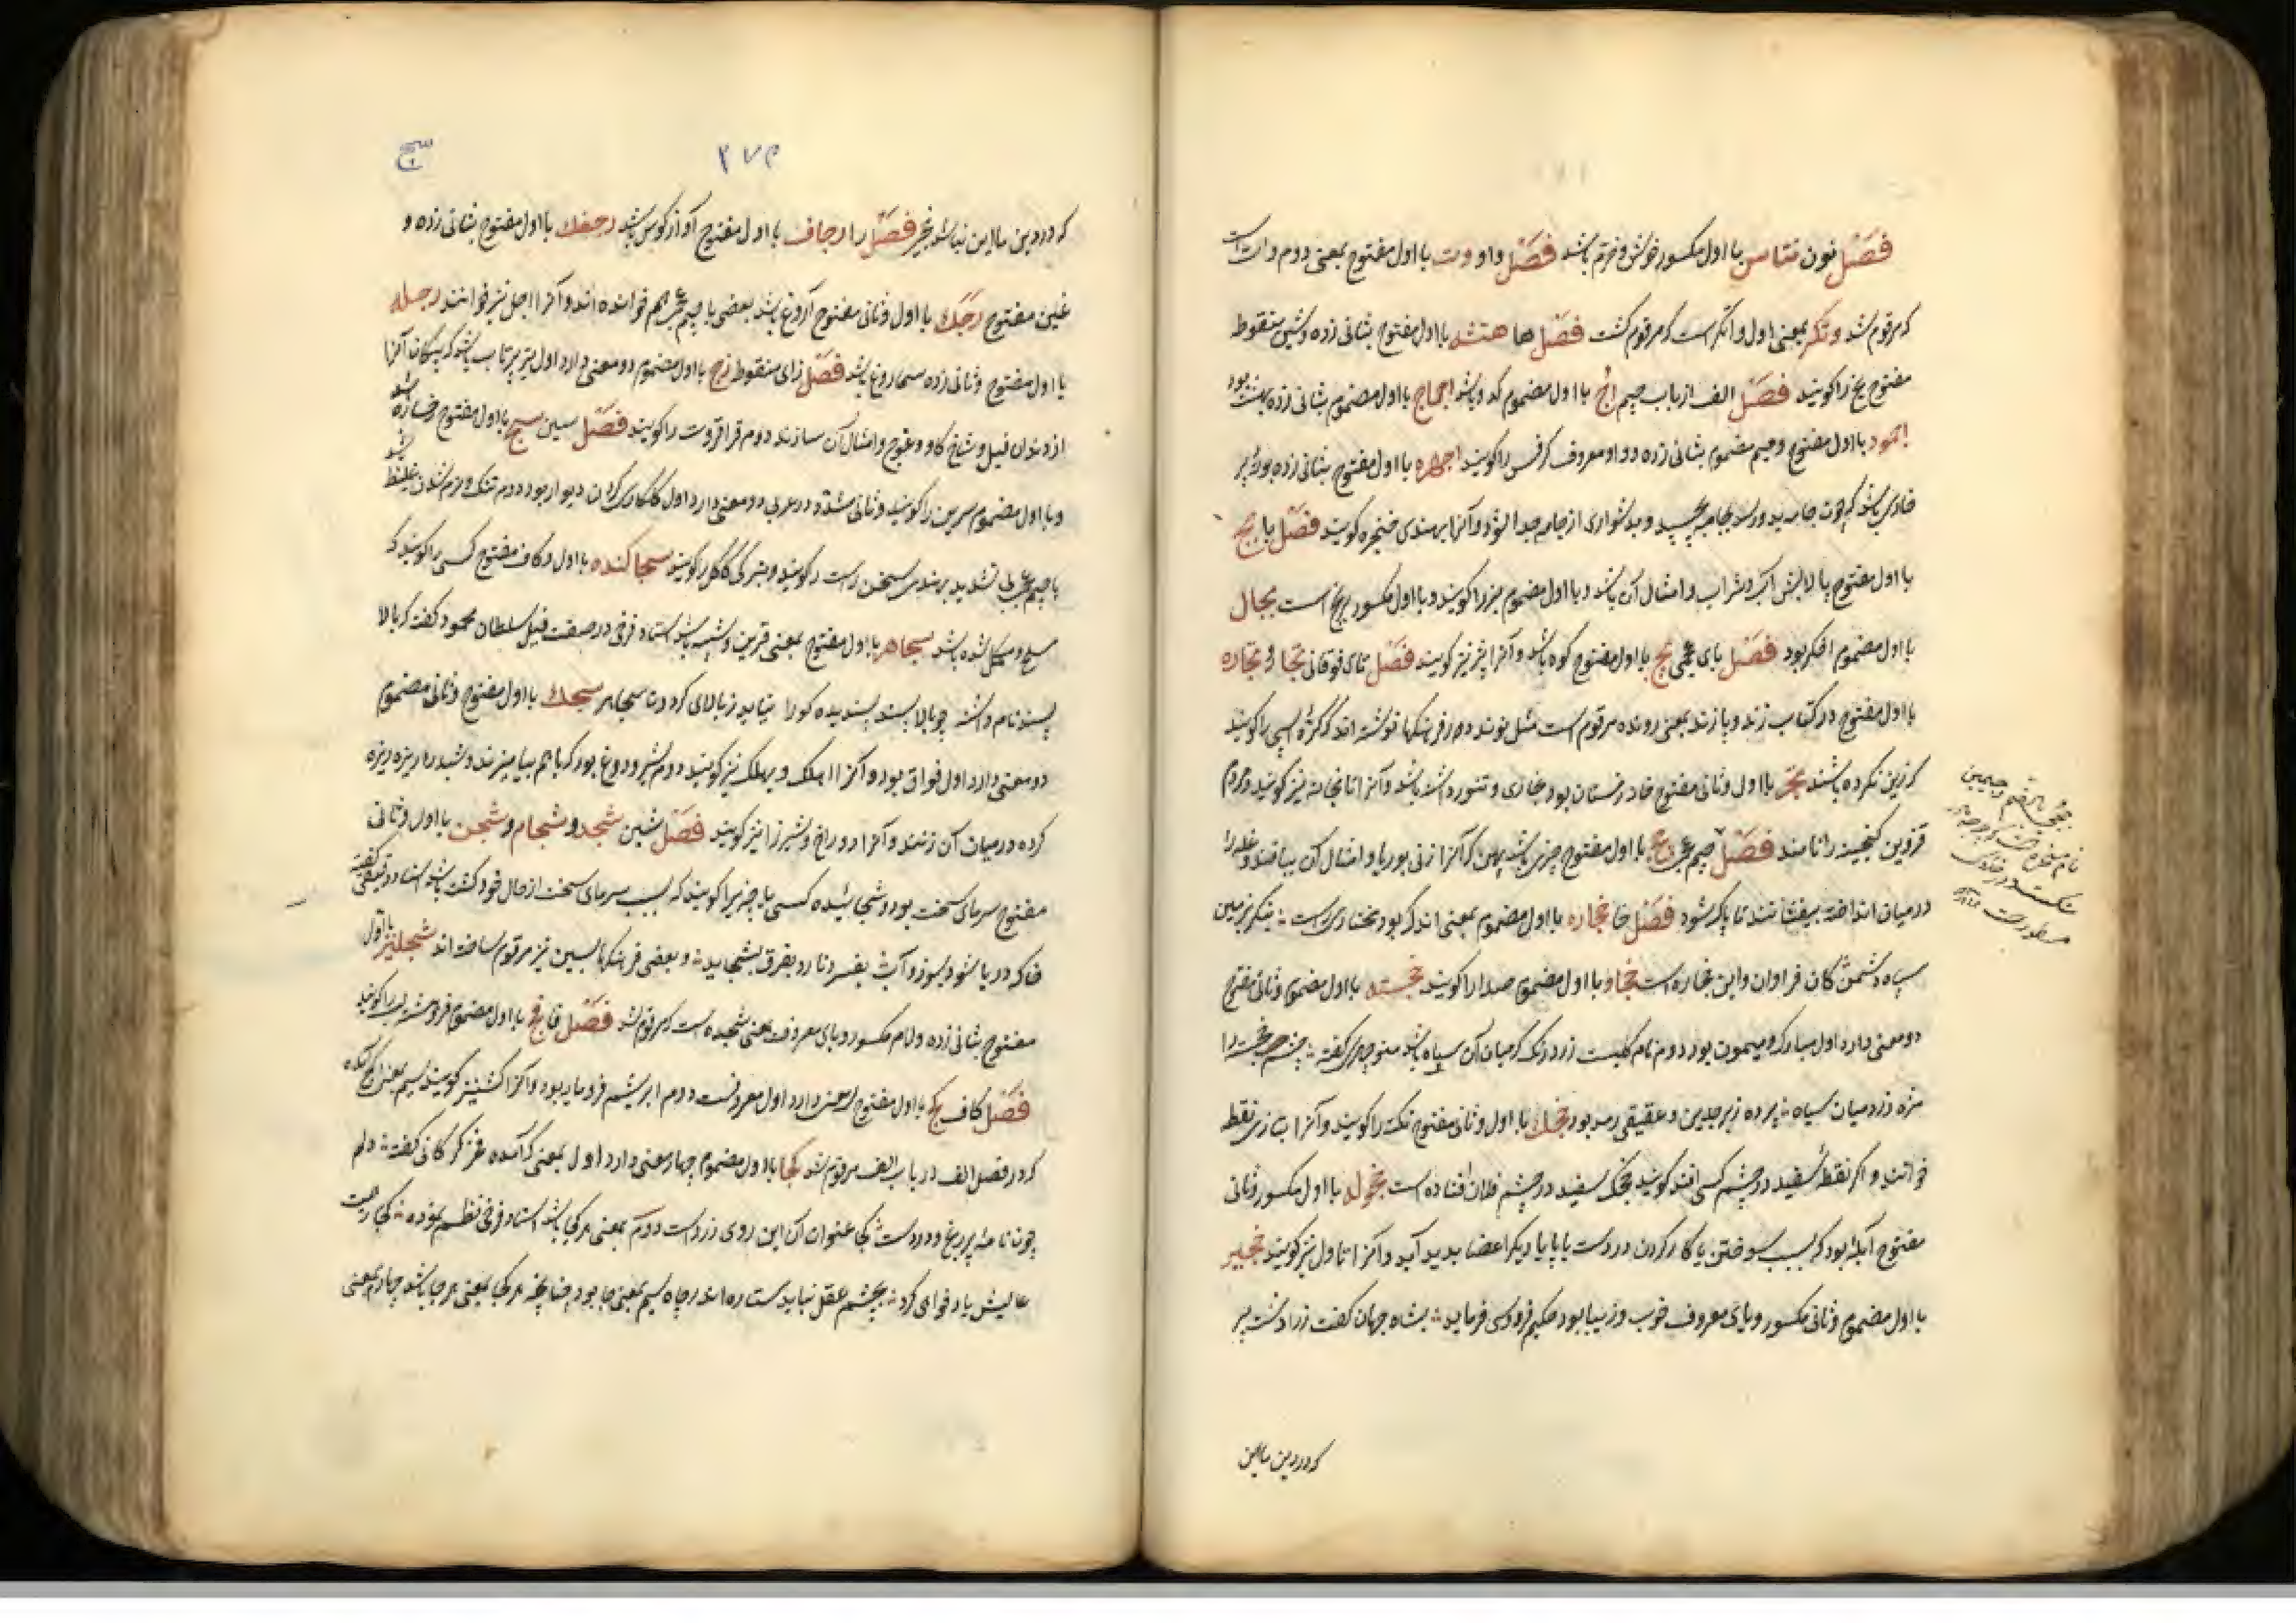 فصل نون نتاس با اول مکسور خوش و خرم باشد فصل واو وت با اول مفتوح بمعنی دوم وات است
که مرقوم شد وتکر بمعنی اول وانکر است که مرقوم گشت فصل ها هتشه با اول مفتوح بثانی زده و شین منقوطه
مفتوح یخ را گویند فصل الف از باب جیم اج با اول مضموم کدو باشد اجماج با اول مضموم بثانی زده بود
اجمود با اول مفتوح و میم مضموم بثانی زده و واو معروف کرفس را گویند اجهره با اول مفتوح بثانی زده بوته پر
خاری باشد که چون جامه بدو رسد بجامه بچسپد و بدشواری از جامه جدا شود و آنرا بهندی گویند فصل با بج
با اول مفتوح پالایش آب و شراب و امثال آن باشد و با اول مضموم بز را گویند و با اول مکسور برنج است بجال
با اول مضموم اخگر بود فصل بای عجمی پج با اول مفتوح کوه باشد و آنرا پژ نیز گویند فصل تای فوقانی تجا و تجاره
با اول مفتوح در کتاب زند و پازند بمعنی رونده مرقوم است مثل نوند و در فرهنگها نوشته اند که کره اسپی را گویند
که زین نکرده باشند تجر با اول و ثانی مفتوح خانه زمستان بود بخاری و تنور داشته باشد و آنرا تابخانه نیز گویند و مردم
قزوین گنجینه را نامند فصل جیم عربی جج با اول مفتوح چیزی باشد پهن که آنرا از نی بوریا و امثال آن ببافند و غله را
در میان انداخته بیفشانند تا پاک شود فصل خا خجاره با اول مضموم بمعنی اندک بود مختاری راست منگر بزمین
سپاه دشمن کان فراوان و این خجاره است خجاو با اول مضموم صدا را گویند خجسته با اول مضموم و ثانی مفتوح
دو معنی دارد اول مبارک و میمون بود دوم نام گلیست زرد رنگ که میان آن سیاه باشد منوچهری گفته چشم خجسته را
مژه زرد میان سیاه پرده زبرجدین و عقیقی رمد بود خجک با اول و ثانی مفتوح نکته را گویند و آنرا بتازی نقطه
خوانند و اگر نقطه سفید در چشم کسی افتد گویند خجک سفید در چشم فلان افتاده است خجوله با اول مکسور و ثانی
مفتوح آبله بود که بسبب سوختن یا کار کردن در دست یا پا یا دیگر اعضا پدید آید و آنرا تاول نیز گویند خجیر
با اول مضموم و ثانی مکسور و یای معروف خوب و زیبا بود حکیم فردوسی فرماید بشاه جهان گفت زرادشت پیر
که در دین ما این
۲۷۳
سج
که در دین ما این نباشد خجیر فصل را رجاف با اول مفتوح آواز کوس باشد رجغک با اول مفتوح بثانی زده و
غین مفتوح رجک با اول و ثانی مفتوح آروغ باشد بعضی با جیم عجمی هم خوانده اند و آنرا اجل نیز خوانند رجله
با اول مفتوح و ثانی زده سماروغ باشد فصل زای منقوطه زج با اول مضموم دو معنی دارد اول تیر پرتاب باشد که پیکان آنرا
از دندان فیل و شاخ گاو و قوچ و امثال آن سازند دوم قراقروت را گویند فصل سین سج با اول مفتوح رخساره باشد
و با اول مضموم سرین را گویند و ثانی مشدد در عربی دو معنی دارد اول کاهگل کردن دیوار بود دوم تنک و نرم شدن غلیظ
با جیم عجمی تشدید بهندی سخن راست را گویند سجاکنده با اول و کاف مفتوح کسی را گویند که
مسلح و مکمل شده باشد سجاهر با اول مفتوح بمعنی قرین و شبیه باشد استاد فرخی در صفت فیل سلطان محمود گفته که بالا
پسند نام داشته چو بالا پسند پسندیده کو را نیابد ز بالای گردون سجاهر سجک با اول مفتوح و ثانی مضموم
دو معنی دارد اول فواق بود و آنرا اهلک و بهلک نیز گویند دوم شیر و دوغ بود که با هم بیامیزند و شبت را ریزه ریزه
کرده در میان آن زنند و آنرا دوراغ و شیراز نیز گویند فصل شین شجد و شجام و شجن با اول و ثانی
مفتوح سرمای سخت بود و شجائیده کسی یا چیزی را گویند که بسبب سرمای سخت از حال خود گشته باشد استاد دقیقی گفته
خاک دریا شود بسوزد آب بفسرد نار و برق بشجاید و بعضی فرهنگها بسین نیز مرقوم ساخته اند شجلیز با اول
مفتوح بثانی زده و لام مکسور و یای معروف بمعنی شجیده است که مرقوم شد فصل فا فج با اول مضموم فروهشته لب را گویند
فصل کاف کج با اول مفتوح سه معنی دارد اول معروفست دوم ابریشم فرومایه بود و آنرا گژ نیز گویند سیم بمعنی
که در فصل الف در باب الف مرقوم شد کجا با اول مضموم چهار معنی دارد اول بمعنی که آمده فخر گرگانی گفته دلم
چون نامه پر ریغ و درد است کجا عنوان آن این روی زرد است دوم بمعنی هر کجا باشد استاد فرخی نظم نموده کجا
عالیش یاد خواهی کرد بچشم عقل نیاید ستاره اندر چاه سیم بمعنی جا بود چنانچه هر کجا یعنی هر جا باشد چهارم بمعنی